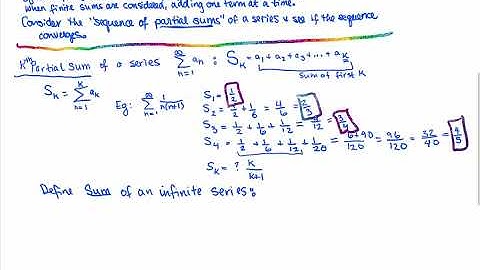 when finite sums are considered, adding one term at a time.
Consider the "Sequence of partial sums" of a series & see if the sequence
converges.
Kth Partial Sum of a series ∞ Σ n=1 an : SK = a1 + a2 + a3 + ... + aK
Sum of first K
SK = K Σ n=1 ak
Eg: ∞ Σ n=1 1/n(n+1)
S1 = 1/2
S2 = 1/2 + 1/6 = 4/6 = 2/3
S3 = 1/2 + 1/6 + 1/12 = 9/12 = 3/4
S4 = 1/2 + 1/6 + 1/12 + 1/20 = 6+90/120 = 96/120 = 32/40 = 4/5
SK = ? K/K+1
Define Sum of an infinite series: